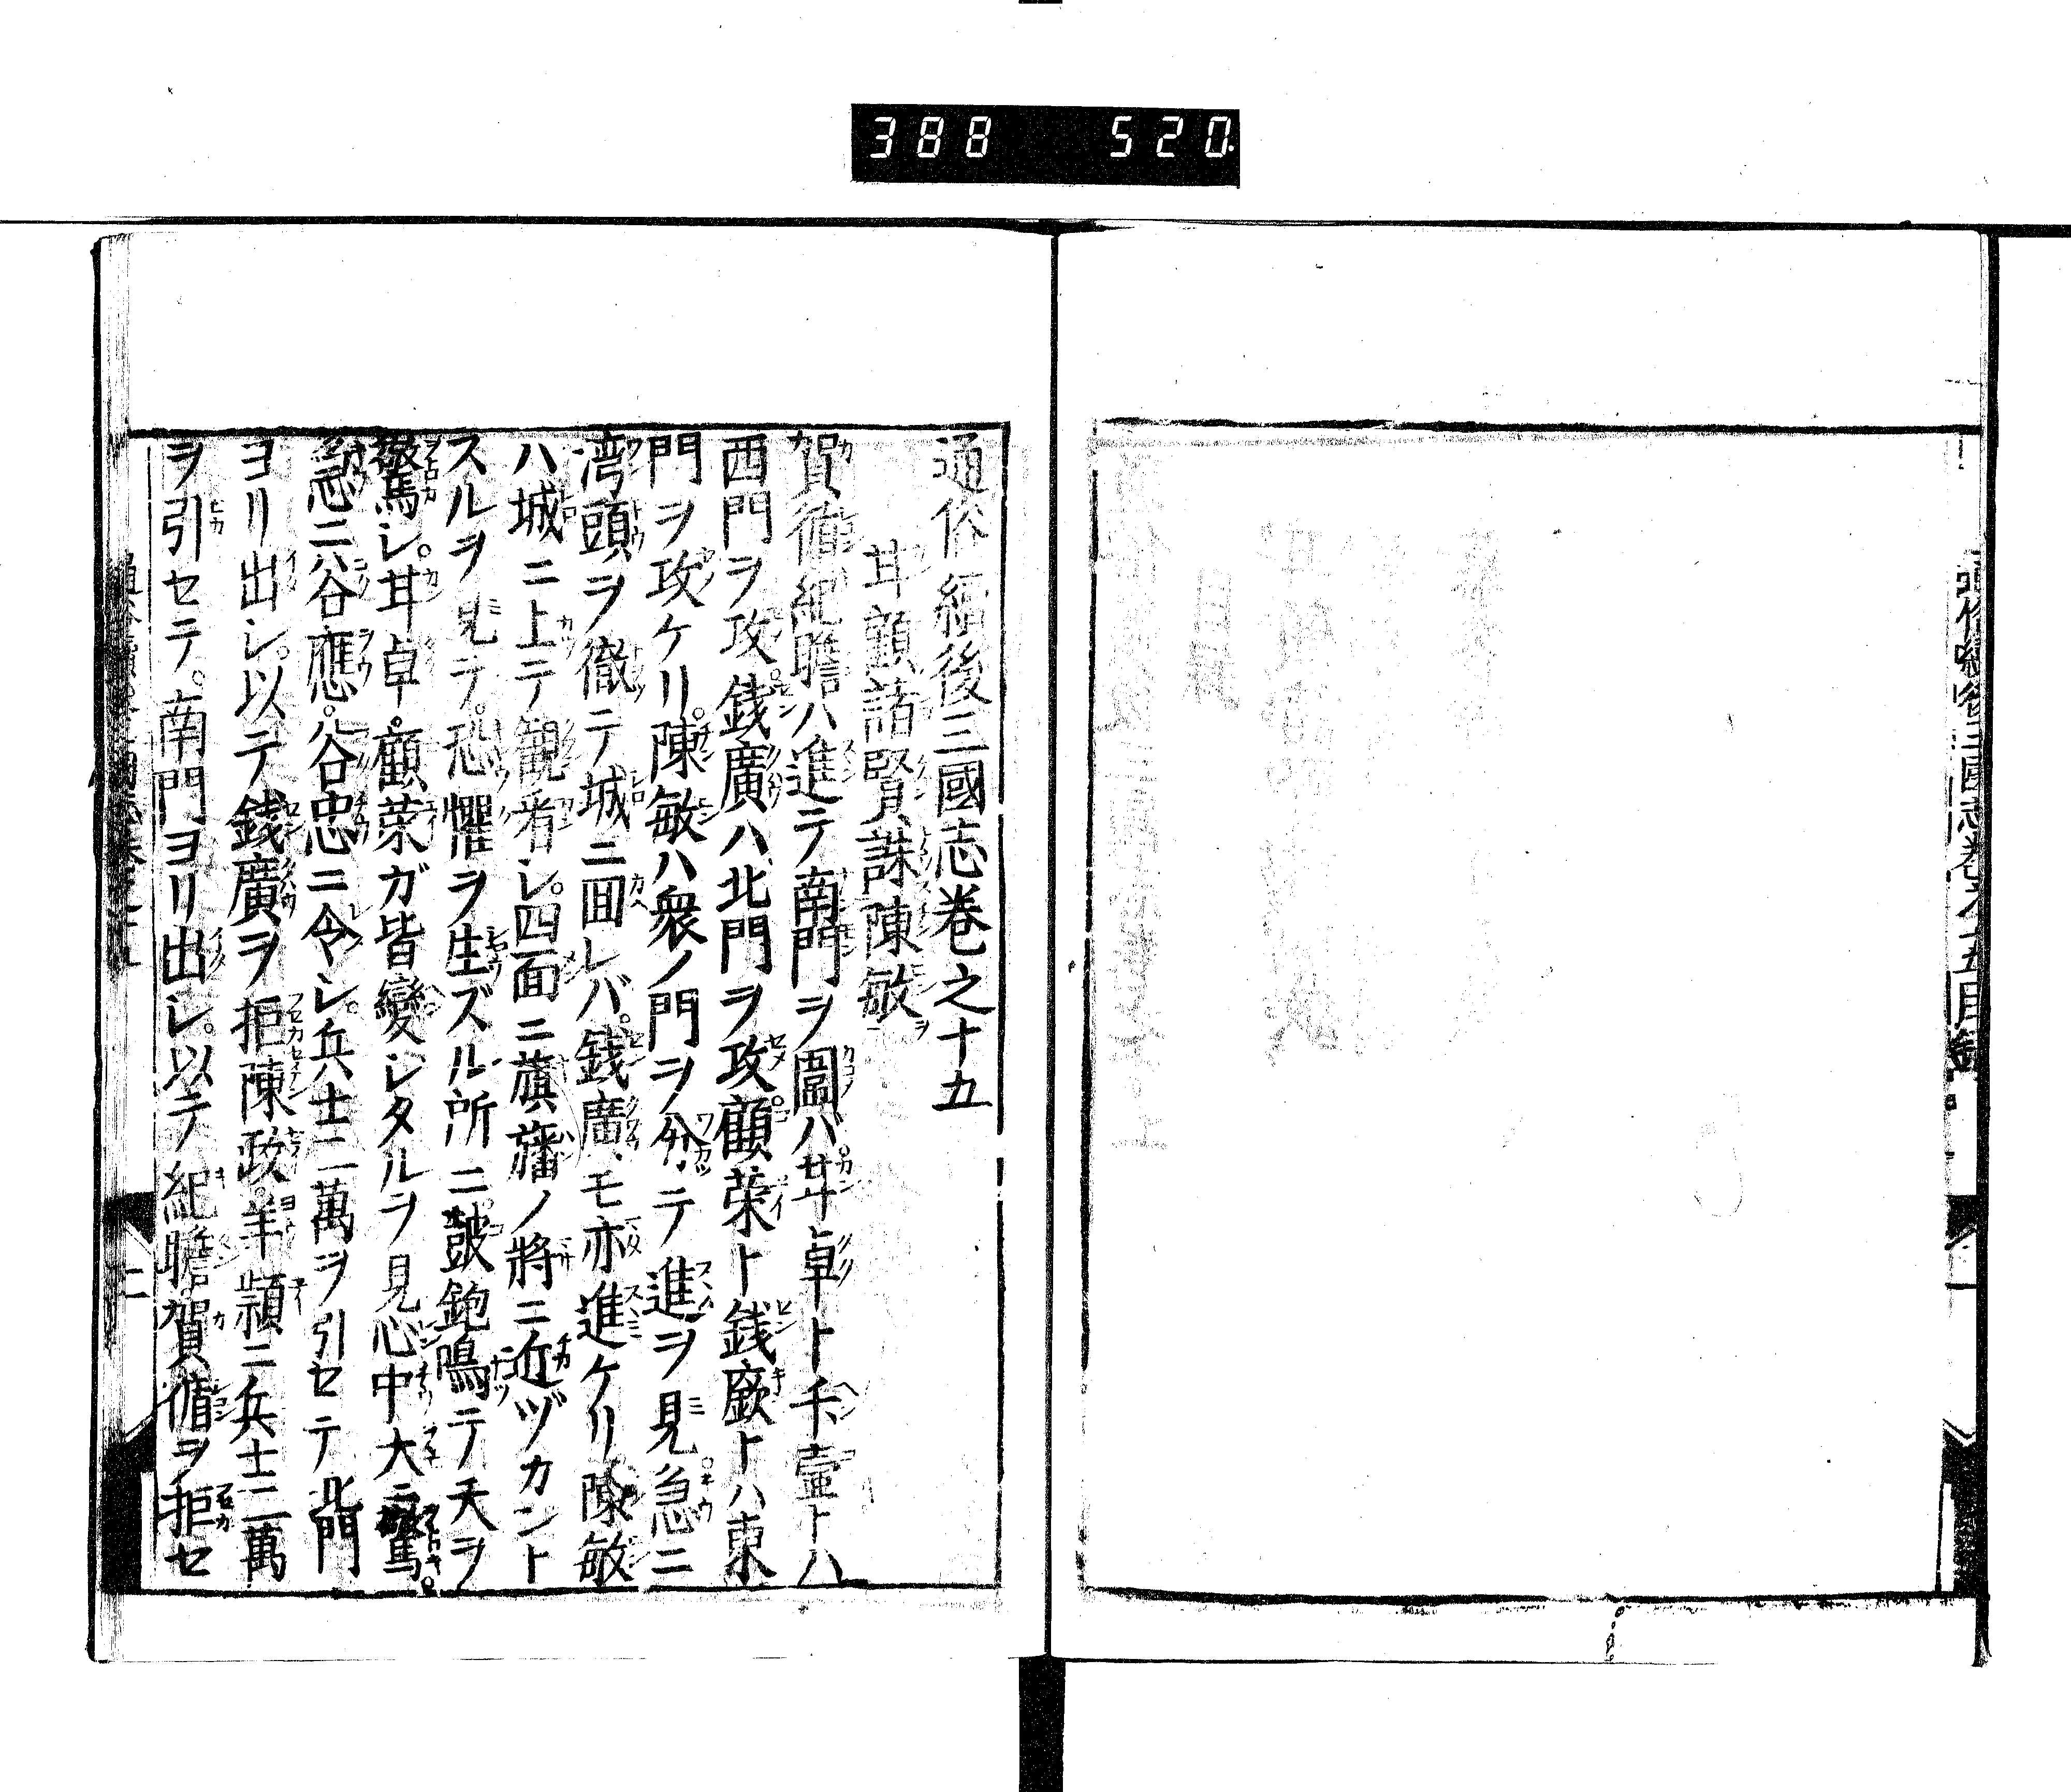 388 520
通俗續後三國志卷之十五目錄
一
通俗續後三國志卷之十五
甘顧諸賢誅陳敏ヲ
賀循紀瞻ハ進テ南門ヲ圍バ。甘卓ト卞壼トハ
西門ヲ攻。錢廣ハ北門ヲ攻。顧榮ト錢廞トハ東
門ヲ攻ケリ。陳敏ハ衆ノ門ヲ分テ進ヲ見。急ニ
湾頭ヲ徹テ城ニ囬レバ。錢廣モ亦進ケリ。陳敏
ハ城ニ上テ観看シ。四面ニ旗旛ノ將ニ近ヅカント
スルヲ見テ。恐懼ヲ生ズル所ニ。鼓鉋鳴テ天ヲ
驚シ。甘卓。顧榮ガ皆變シタルヲ見心中大ニ驚。
急ニ谷應。谷忠ニ令シ。兵士二萬ヲ引セテ北門
ヨリ出シ。以テ錢廣ヲ拒陳政。羊頴ニ兵士二萬
ヲ引セテ。南門ヨリ出シ。以テ紀瞻。賀循ヲ拒セ
二